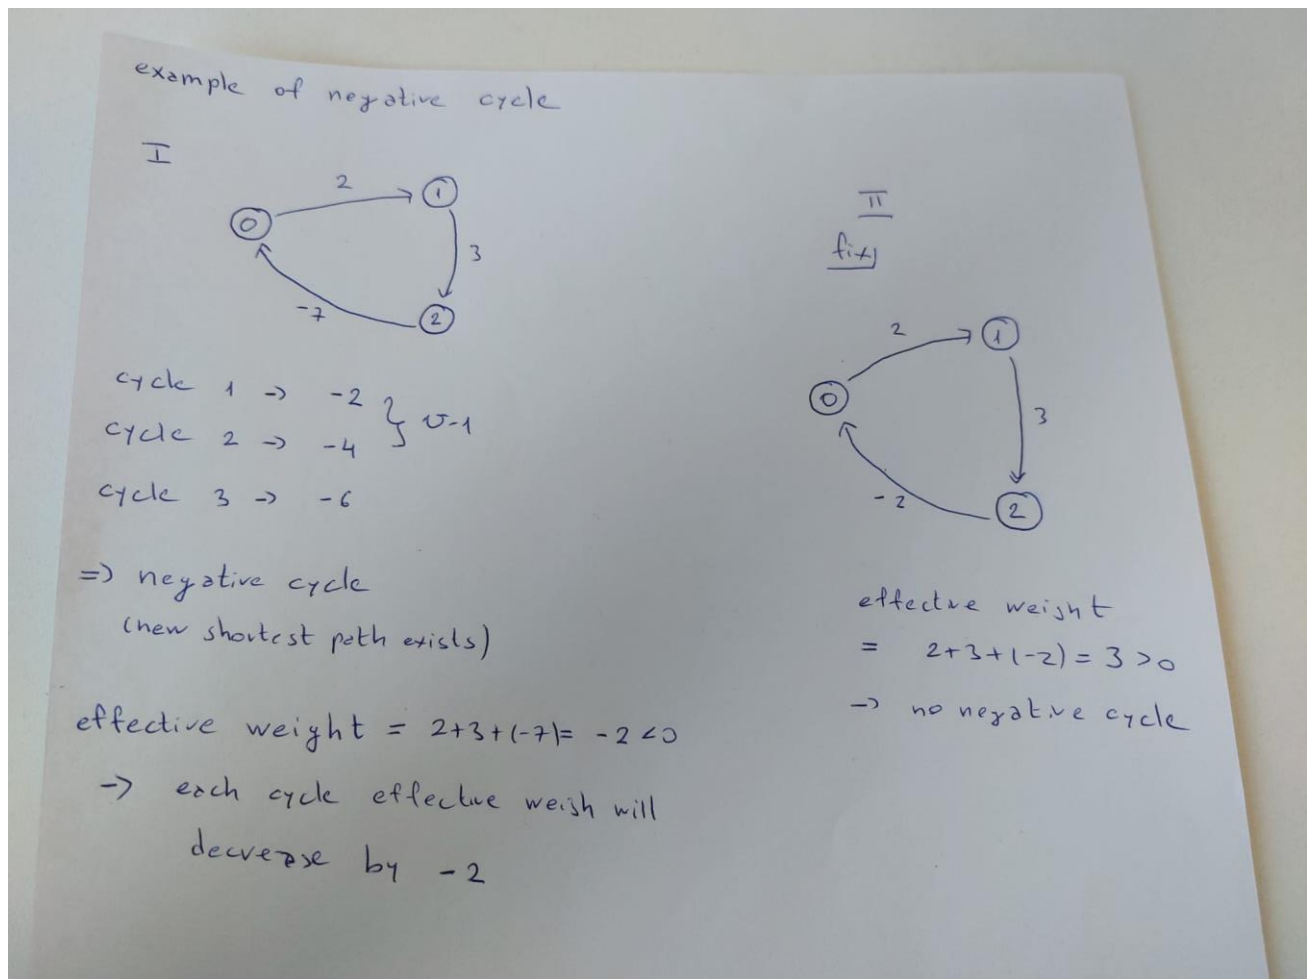 example of negative cycle
I
2
1
0
3
-7
2
cycle 1 -> -2
cycle 2 -> -4
} v-1
cycle 3 -> -6
=> negative cycle
(new shortest path exists)
effective weight = 2+3+(-7)= -2<0
-> each cycle effective weigh will
decrease by -2
II
fix)
2
1
0
3
-2
2
effective weight
= 2+3+(-2) = 3 >0
-> no negative cycle